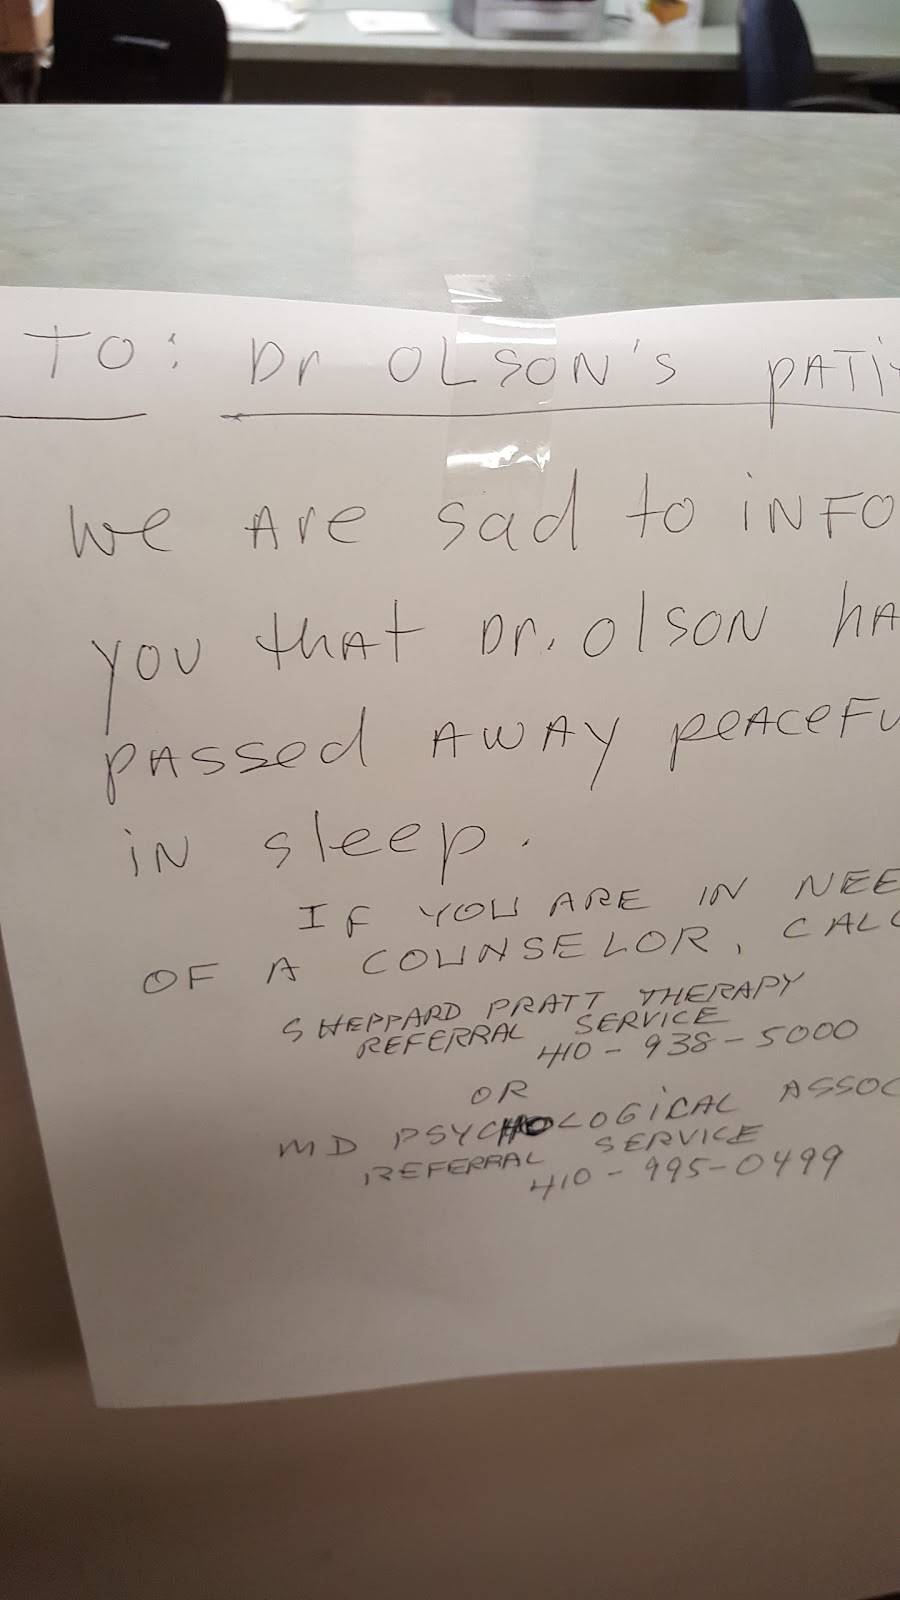 TO: Dr OLSON'S PATi
we Are sad to iNFO
you thAt Dr. Olson hA
PAssed AWAY peAceFu
iN sleep.
IF YOU ARE IN NEE
OF A COUNSELOR, CALL
SHEPPARD PRATT THERAPY
REFERRAL SERVICE
410-938-5000
OR
MD PSYCHOLOGICAL ASSOC
REFERRAL SERVICE
410-995-0499